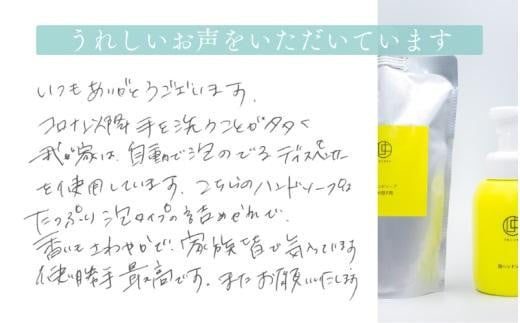 うれしいお声をいただいています
いつもありがとうございます。
コロナ以降 手を洗うことが多く
我が家は、自動で泡のでるディスペンサー
を使用しています。こちらのハンドソープは
たっぷり泡タイプの詰めかえで、
香りもさわやかで、家族皆で気に入っています
使い勝手 最高です。またお願いいたします